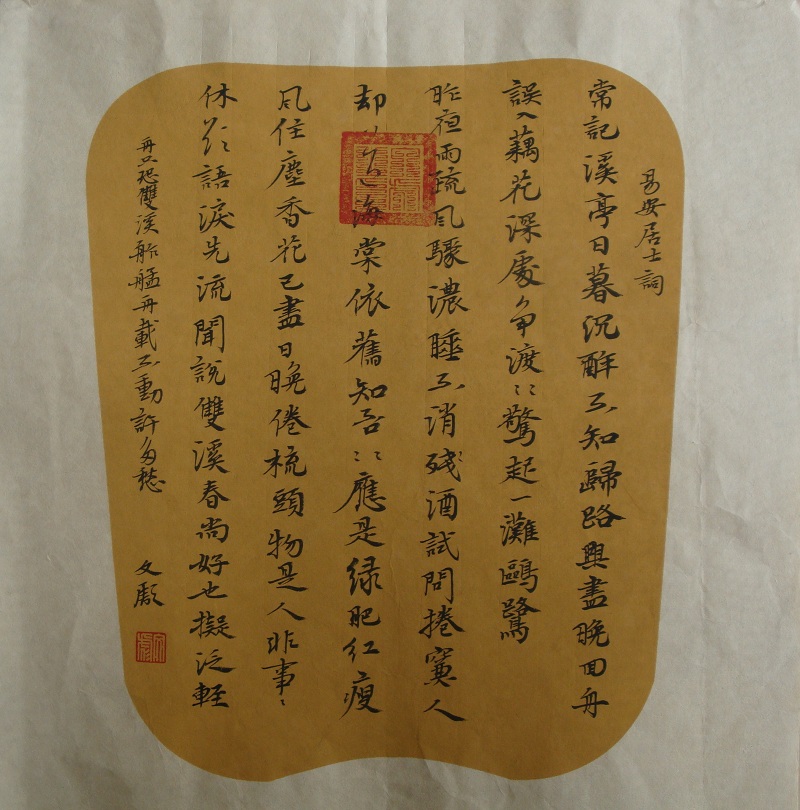 易安居士詞
常記溪亭日暮沉醉不知歸路興盡晚回舟
誤入藕花深處爭渡〻驚起一灘鷗鷺
昨夜雨疏風驟濃睡不消殘酒試問捲簾人
却道海棠依舊知否〻應是緑肥紅瘦
風住塵香花已盡日晚倦梳頭物是人非事〻
休欲語淚先流聞說雙溪春尚好也擬泛輕
舟只恐雙溪舴艋舟載不動許多愁
文